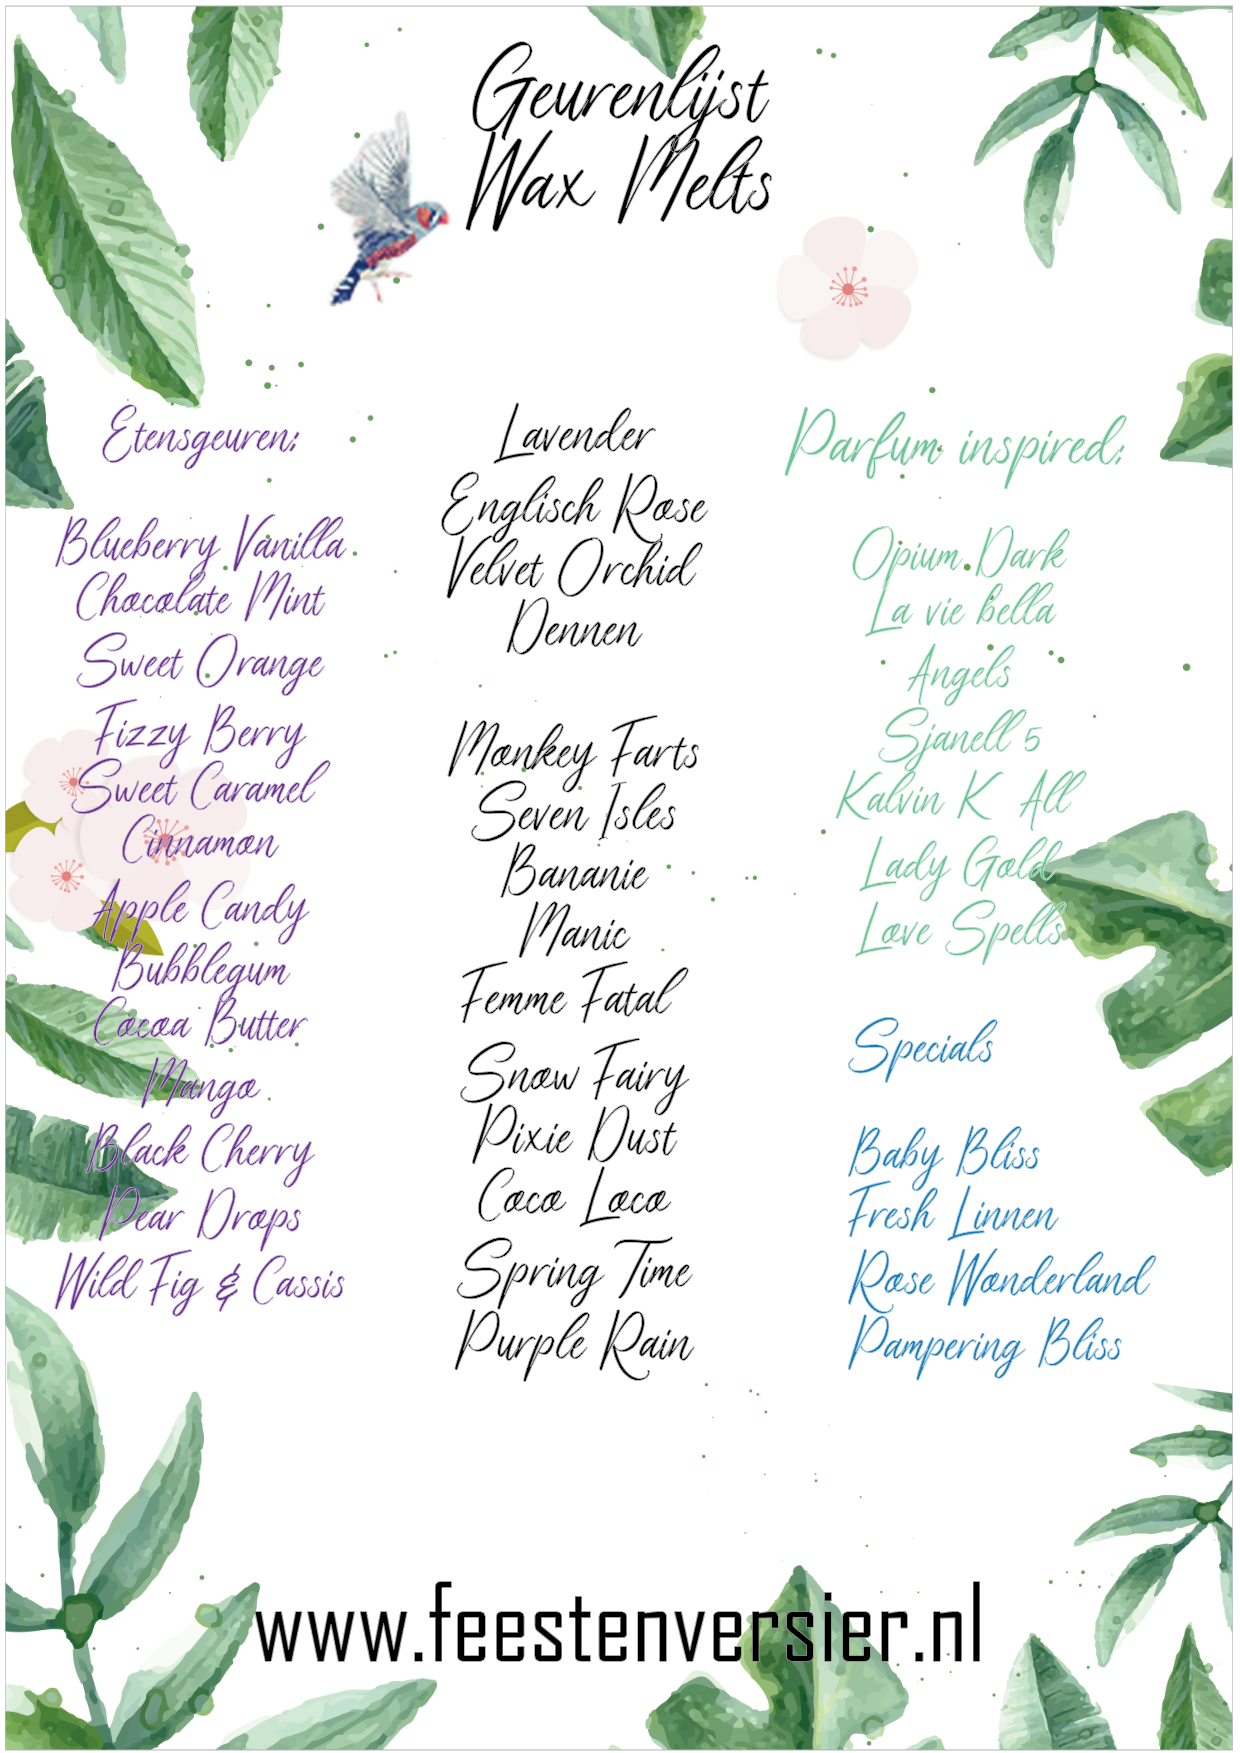 Geurenlijst
Wax Melts
Etensgeuren:
Blueberry Vanilla
Chocolate Mint
Sweet Orange
Fizzy Berry
Sweet Caramel
Cinnamon
Apple Candy
Bubblegum
Cocoa Butter
Mango
Black Cherry
Pear Drops
Wild Fig & Cassis
Lavender
Englisch Rose
Velvet Orchid
Dennen
Monkey Farts
Seven Isles
Bananie
Manic
Femme Fatal
Snow Fairy
Pixie Dust
Coco Loco
Spring Time
Purple Rain
Parfum inspired:
Opium Dark
La vie bella
Angels
Sjanell 5
Kalvin K All
Lady Gold
Love Spells
Specials
Baby Bliss
Fresh Linnen
Rose Wonderland
Pampering Bliss
www.feestenversier.nl